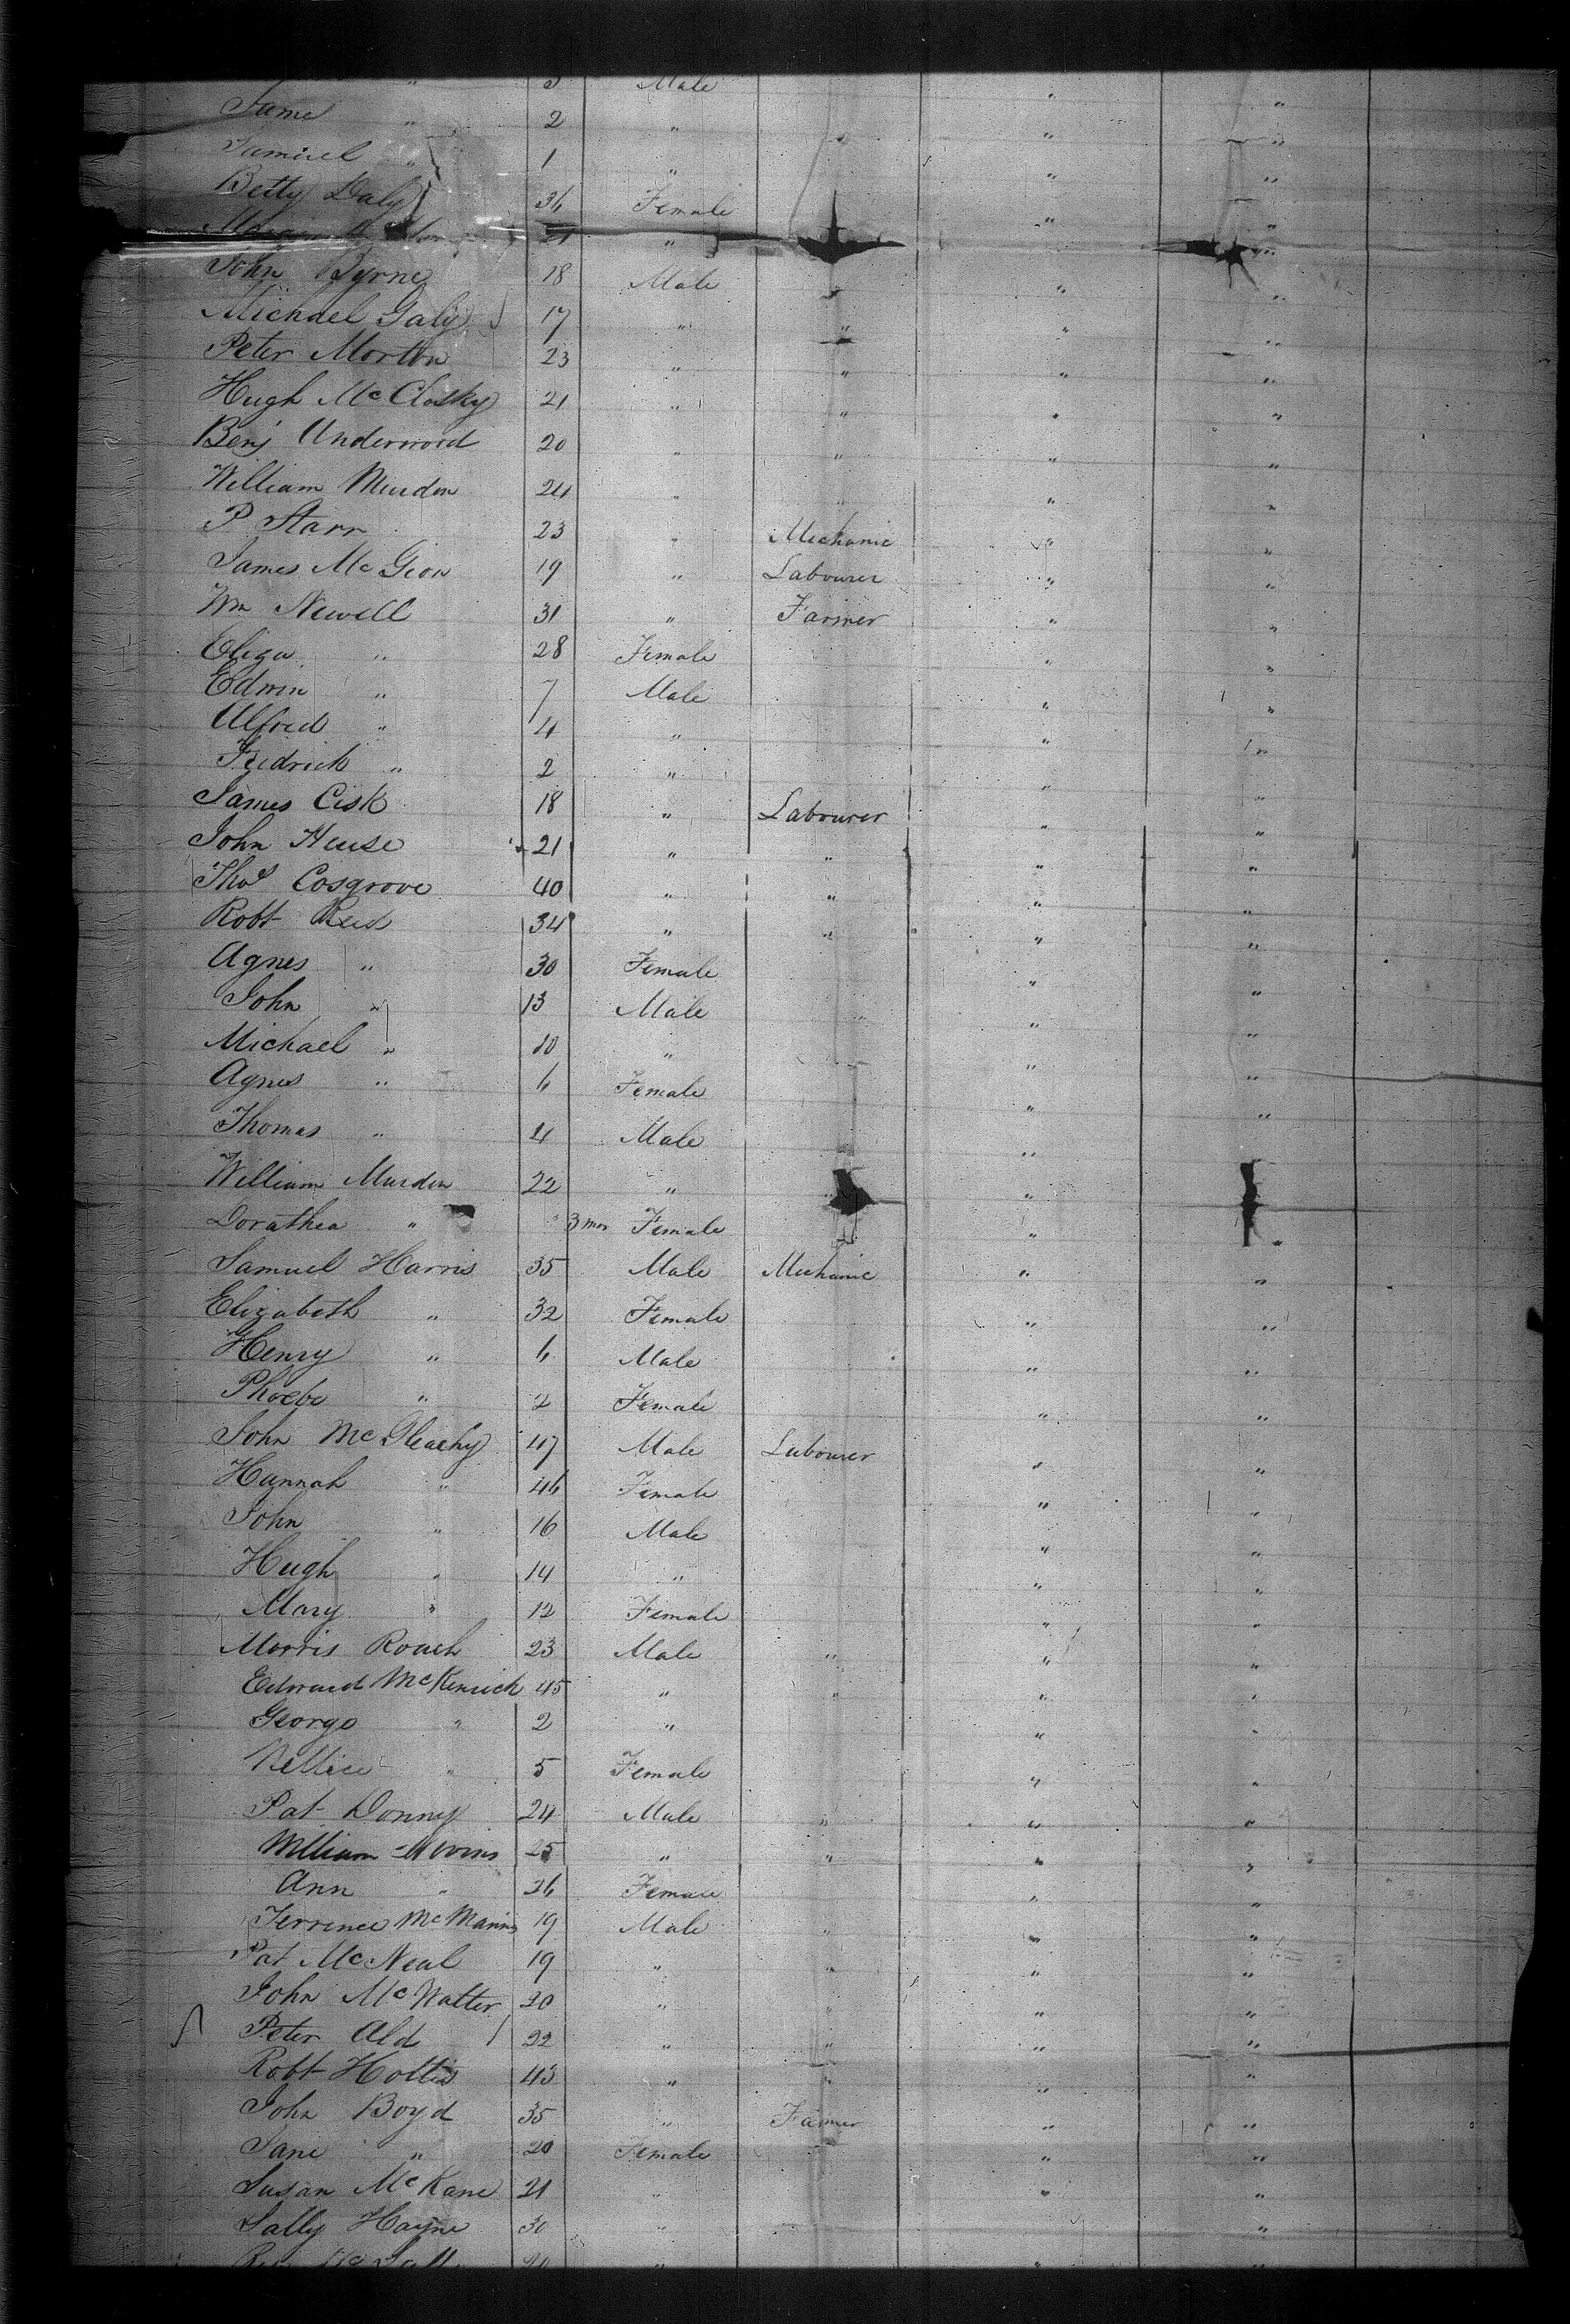 " Male " "
Jame " 2 " " "
Samuel " 1 " " "
Betty Daly 36 Female " "
21 " "
John Byrne 18 Male " "
Michael Galy 17 " " " "
Peter Morton 23 " " " "
Hugh McClosky 21 " " " "
Benj Underwood 20 " " " "
William Murden 24 " " " "
P Starr 23 " Mechanic " "
James McGeon 19 " Labourer " "
Wm Newell 31 " Farmer " "
Eliza " 28 Female " "
Edwin " 7 Male " "
Alfred " 4 " " "
Fredrick " 2 " " "
James Cisk 18 " Labourer " "
John House 21 " " " "
Thos Cosgrove 40 " " " "
Robt Reid 34 " " " "
Agnes " 30 Female " "
John " 13 Male " "
Michael " 10 " " "
Agnes " 6 Female " "
Thomas " 4 Male " "
William Murden 22 " " "
Dorathea " 3 mos Female " "
Samuel Harris 35 Male Mechanic " "
Elizabeth " 32 Female " "
Henry " 6 Male " "
Phoebe " 2 Female " "
John McGleachy 47 Male Labourer " "
Hannah " 46 Female " "
John " 16 Male " "
Hugh " 14 " " "
Mary " 12 Female " "
Morris Roach 23 Male " " "
Edward McKenrick 45 " " " "
George " 2 " " "
Nellie " 5 Female " "
Pat Donny 24 Male " " "
William 25 " " " "
Ann " 26 Female " "
Terrence McManis 19 Male " " "
Pat McNeal 19 " " " "
John McWatter 20 " " " "
Peter Ald 22 " " " "
Robt Hottis 43 " " " "
John Boyd 35 " Farmer " "
Jane " 20 Female " "
Susan McKane 21 " " "
Sally Hayne 30 " "
20 " " "